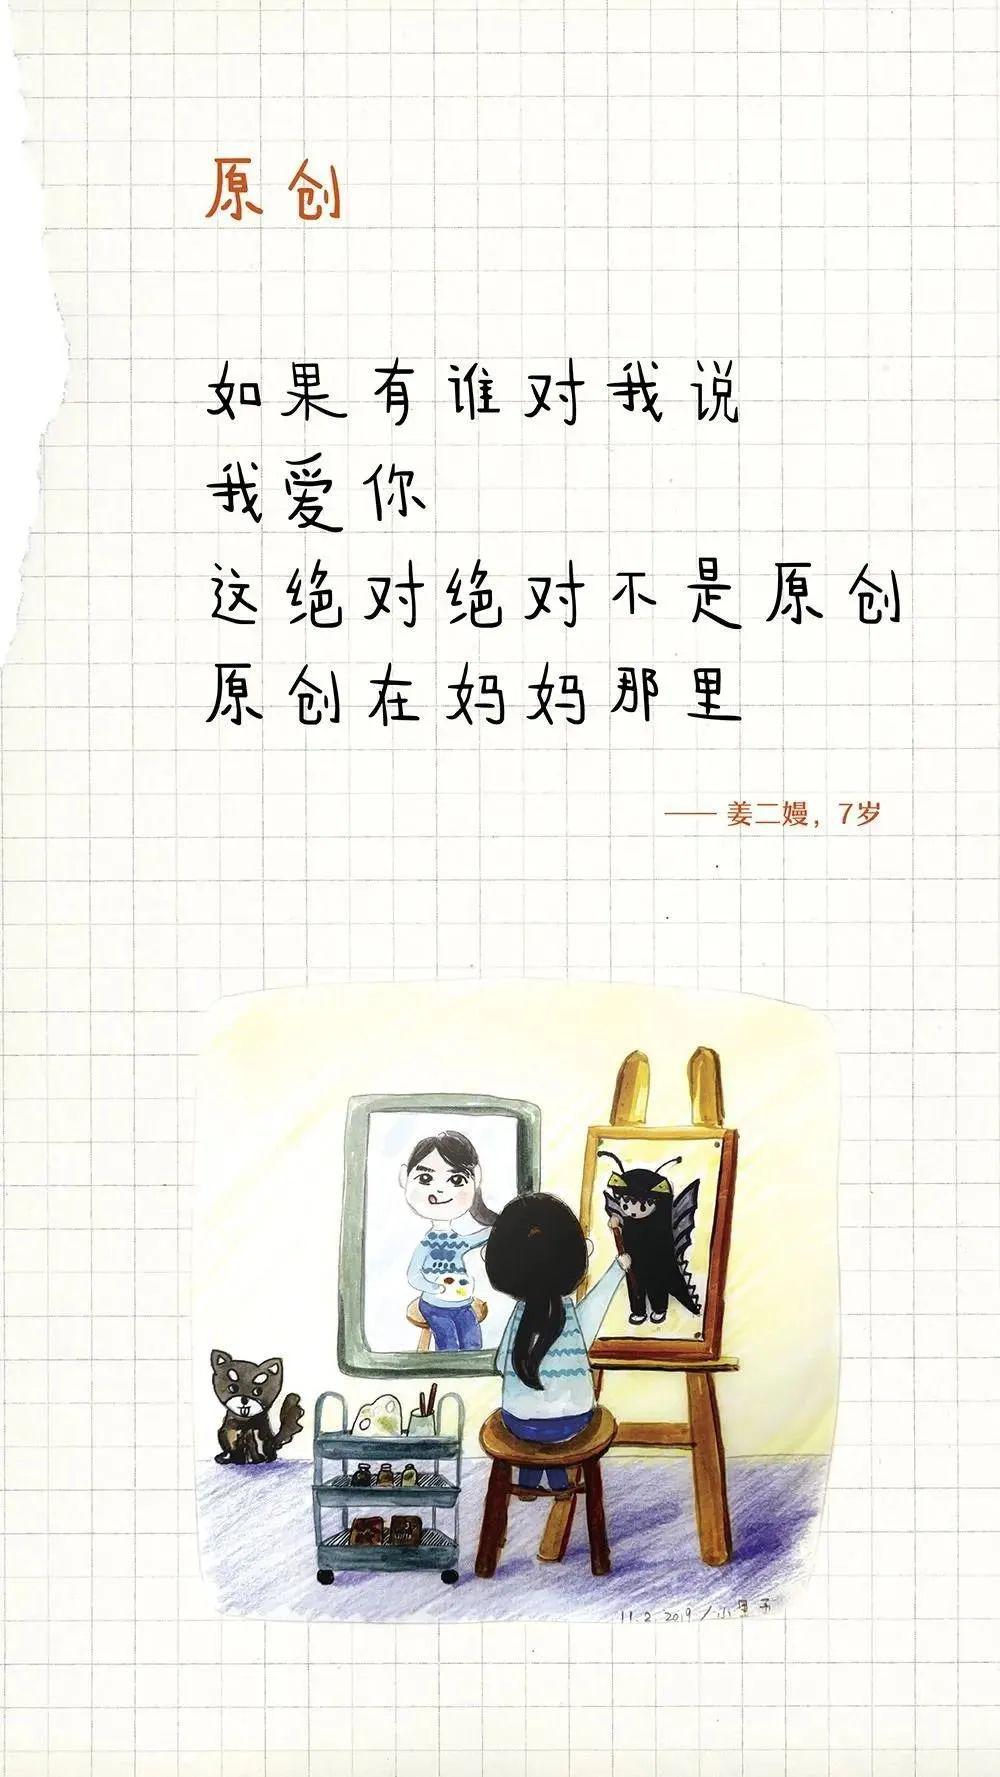 原创
如果有谁对我说
我爱你
这绝对绝对不是原创
原创在妈妈那里
—— 姜二嫚，7岁
11.2.2019/小里子